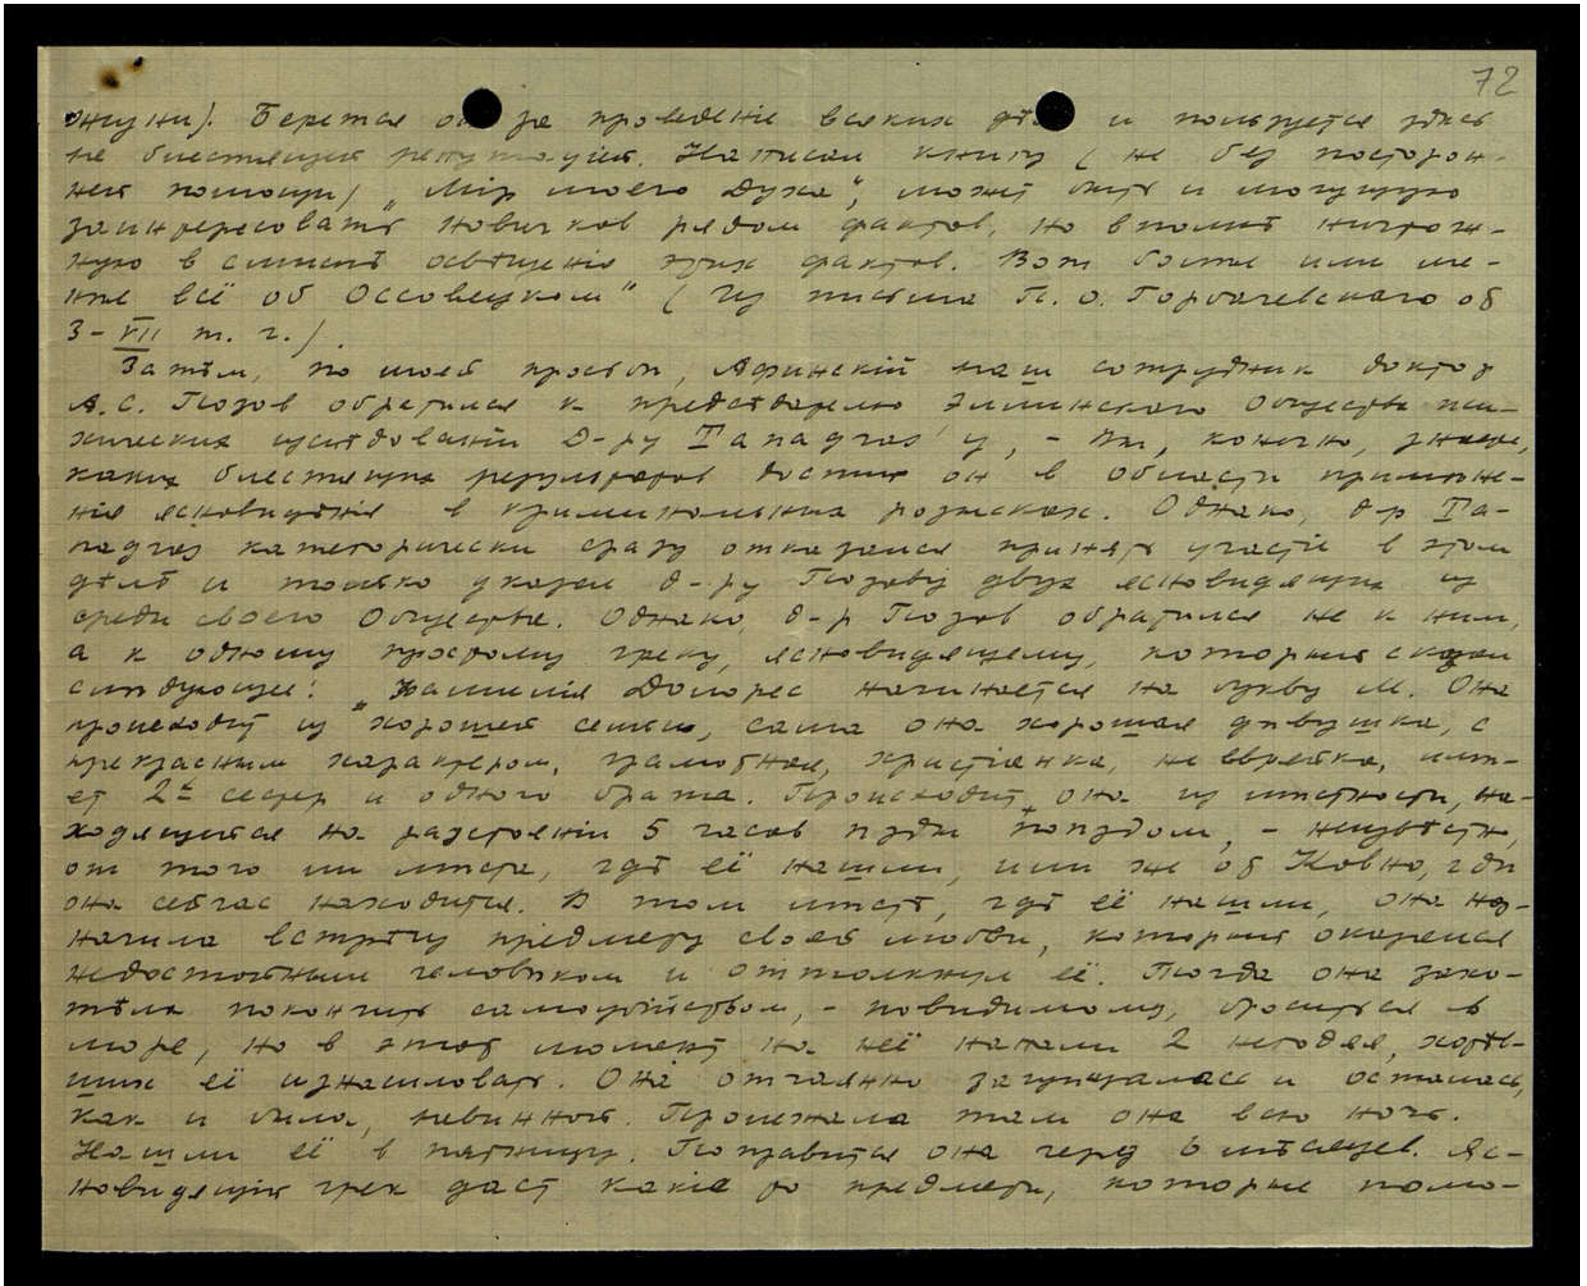 72
жизни). Берется он за проведение всяких дѣл и пользуется здесь
не блестящей репутаціей. Написал книгу (не без посторон-
ней помощи) „Мір моего духа“, может быть и могущую
заинтересовать новичков рядом фактов, но вполнѣ ничтож-
ную в смыслѣ освѣщенія этих фактов. Вот более или ме-
нее всё об Оссовецком" (Из письма П. О. Горбачевского от
3-VII т. г.).
Затѣм, по моей просьбѣ, Афинскій наш сотрудник доктор
А. С. Позов обратился к председателю Эллинского Общества пси-
хических изслѣдованій Д-ру Tanagras'у, - Вы, конечно, знаете,
каких блестящих результатов достиг он в области примѣне-
нія ясновидѣнія в криминальных розысках. Однако, д-р Та-
награз категорически сразу отказался принять участіе в этом
дѣлѣ и только указал д-ру Позову двух ясновидящих из
среды своего Общества. Однако, д-р Позов обратился не к ним,
а к одному простому греку, ясновидящему, который сказал
слѣдующее: „Фамилія Долорес начинается на букву М. Она
происходит из хорошей семьи, сама она хорошая дѣвушка, с
прекрасным характером, грамотная, христіанка, не еврейка, имѣ-
ет 2х сестер и одного брата. Происходит она из мѣстности, на-
ходящейся на разстояніи 5 часов ѣзды поѣздом, - неизвѣстно,
от того ли мѣста, гдѣ её нашли, или же от Ковно, гдѣ
она сейчас находится. В том мѣстѣ, гдѣ её нашли, она наз-
начила встрѣчу предмету своей любви, который оказался
недостойным человѣком и оттолкнул её. Тогда она захо-
тѣла покончить самоубійством, - повидимому, броситься в
море, но в этот момент на неё напали 2 негодяя, хотѣв-
ших её изнасиловать. Она отчаянно защищалась и осталась,
как и была, невинной. Пролежала там она всю ночь.
Нашли её в пятницу. Поправится она через 6 мѣсяцев. Яс-
новидящій грек даст какіе то предметы, которые помо-